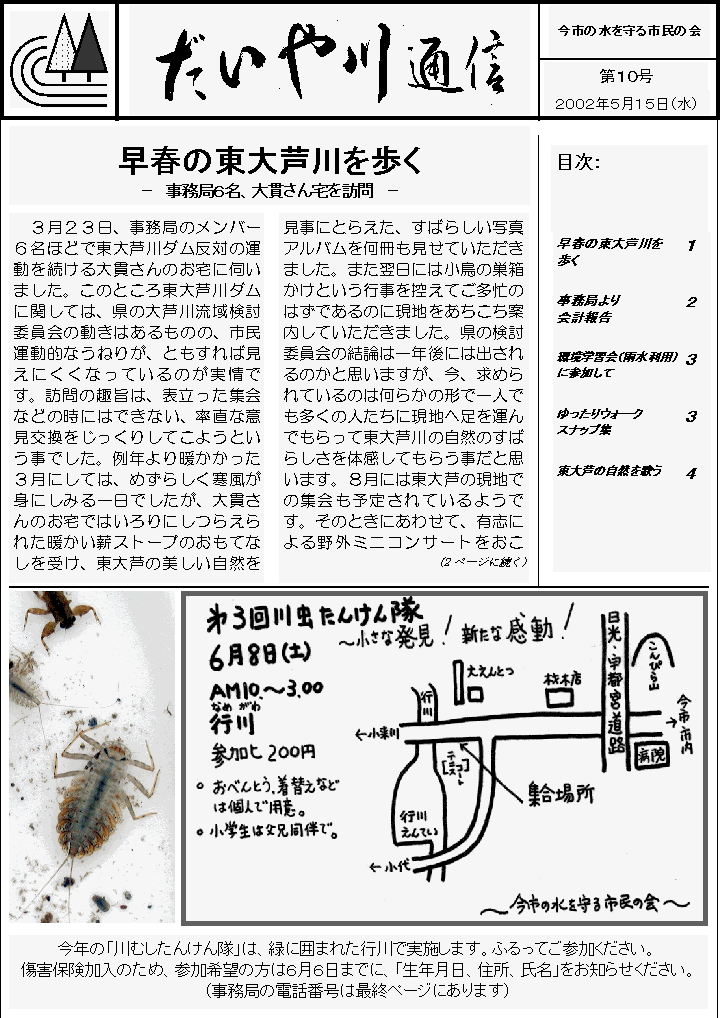 だいや川通信
今市の水を守る市民の会
第10号
2002年5月15日(水)
早春の東大芦川を歩く
－　事務局6名、大貫さん宅を訪問　－
　３月２３日、事務局のメンバー
６名ほどで東大芦川ダム反対の運
動を続ける大貫さんのお宅に伺い
ました。このところ東大芦川ダム
に関しては、県の大芦川流域検討
委員会の動きはあるものの、市民
運動的なうねりが、ともすれば見
えにくくなっているのが実情で
す。訪問の趣旨は、表立った集会
などの時にはできない、率直な意
見交換をじっくりしてこようとい
う事でした。例年より暖かかった
３月にしては、めずらしく寒風が
身にしみる一日でしたが、大貫さ
んのお宅ではいろりにしつらえら
れた暖かい薪ストーブのおもてな
しを受け、東大芦の美しい自然を
見事にとらえた、すばらしい写真
アルバムを何冊も見せていただき
ました。また翌日には小鳥の巣箱
かけという行事を控えてご多忙の
はずであるのに現地をあちこち案
内していただきました。県の検討
委員会の結論は一年後には出され
るのかと思いますが、今、求めら
れているのは何らかの形で一人で
も多くの人たちに現地へ足を運ん
でもらって東大芦川の自然のすば
らしさを体感してもらう事だと思
います。８月には東大芦の現地で
の集会も予定されているようで
す。そのときにあわせて、有志に
よる野外ミニコンサートをおこ
(２ページに続く)
目次:
早春の東大芦川を
歩く 1
事務局より
会計報告 2
環境学習会(雨水利用)
に参加して 3
ゆったりウォーク
スナップ集 3
東大芦の自然を歌う 4
第3回川虫たんけん隊
～小さな発見！新たな感動！
6月8日(土)
AM10.～3.00
なめがわ
行川
参加ヒ 200円
○ おべんとう、着替えなど
は個人で用意。
○ 小学生は父兄同伴で。
大えんとつ
材木店
日光・宇都宮道路
こんぴら山
今市市内
病院
行川
←小来川
[テニスコート]
集合場所
行川
えんてい
←小代
～今市の水を守る市民の会～
今年の「川むしたんけん隊」は、緑に囲まれた行川で実施します。ふるってご参加ください。
傷害保険加入のため、参加希望の方は6月6日までに、「生年月日、住所、氏名」をお知らせください。
(事務局の電話番号は最終ページにあります)